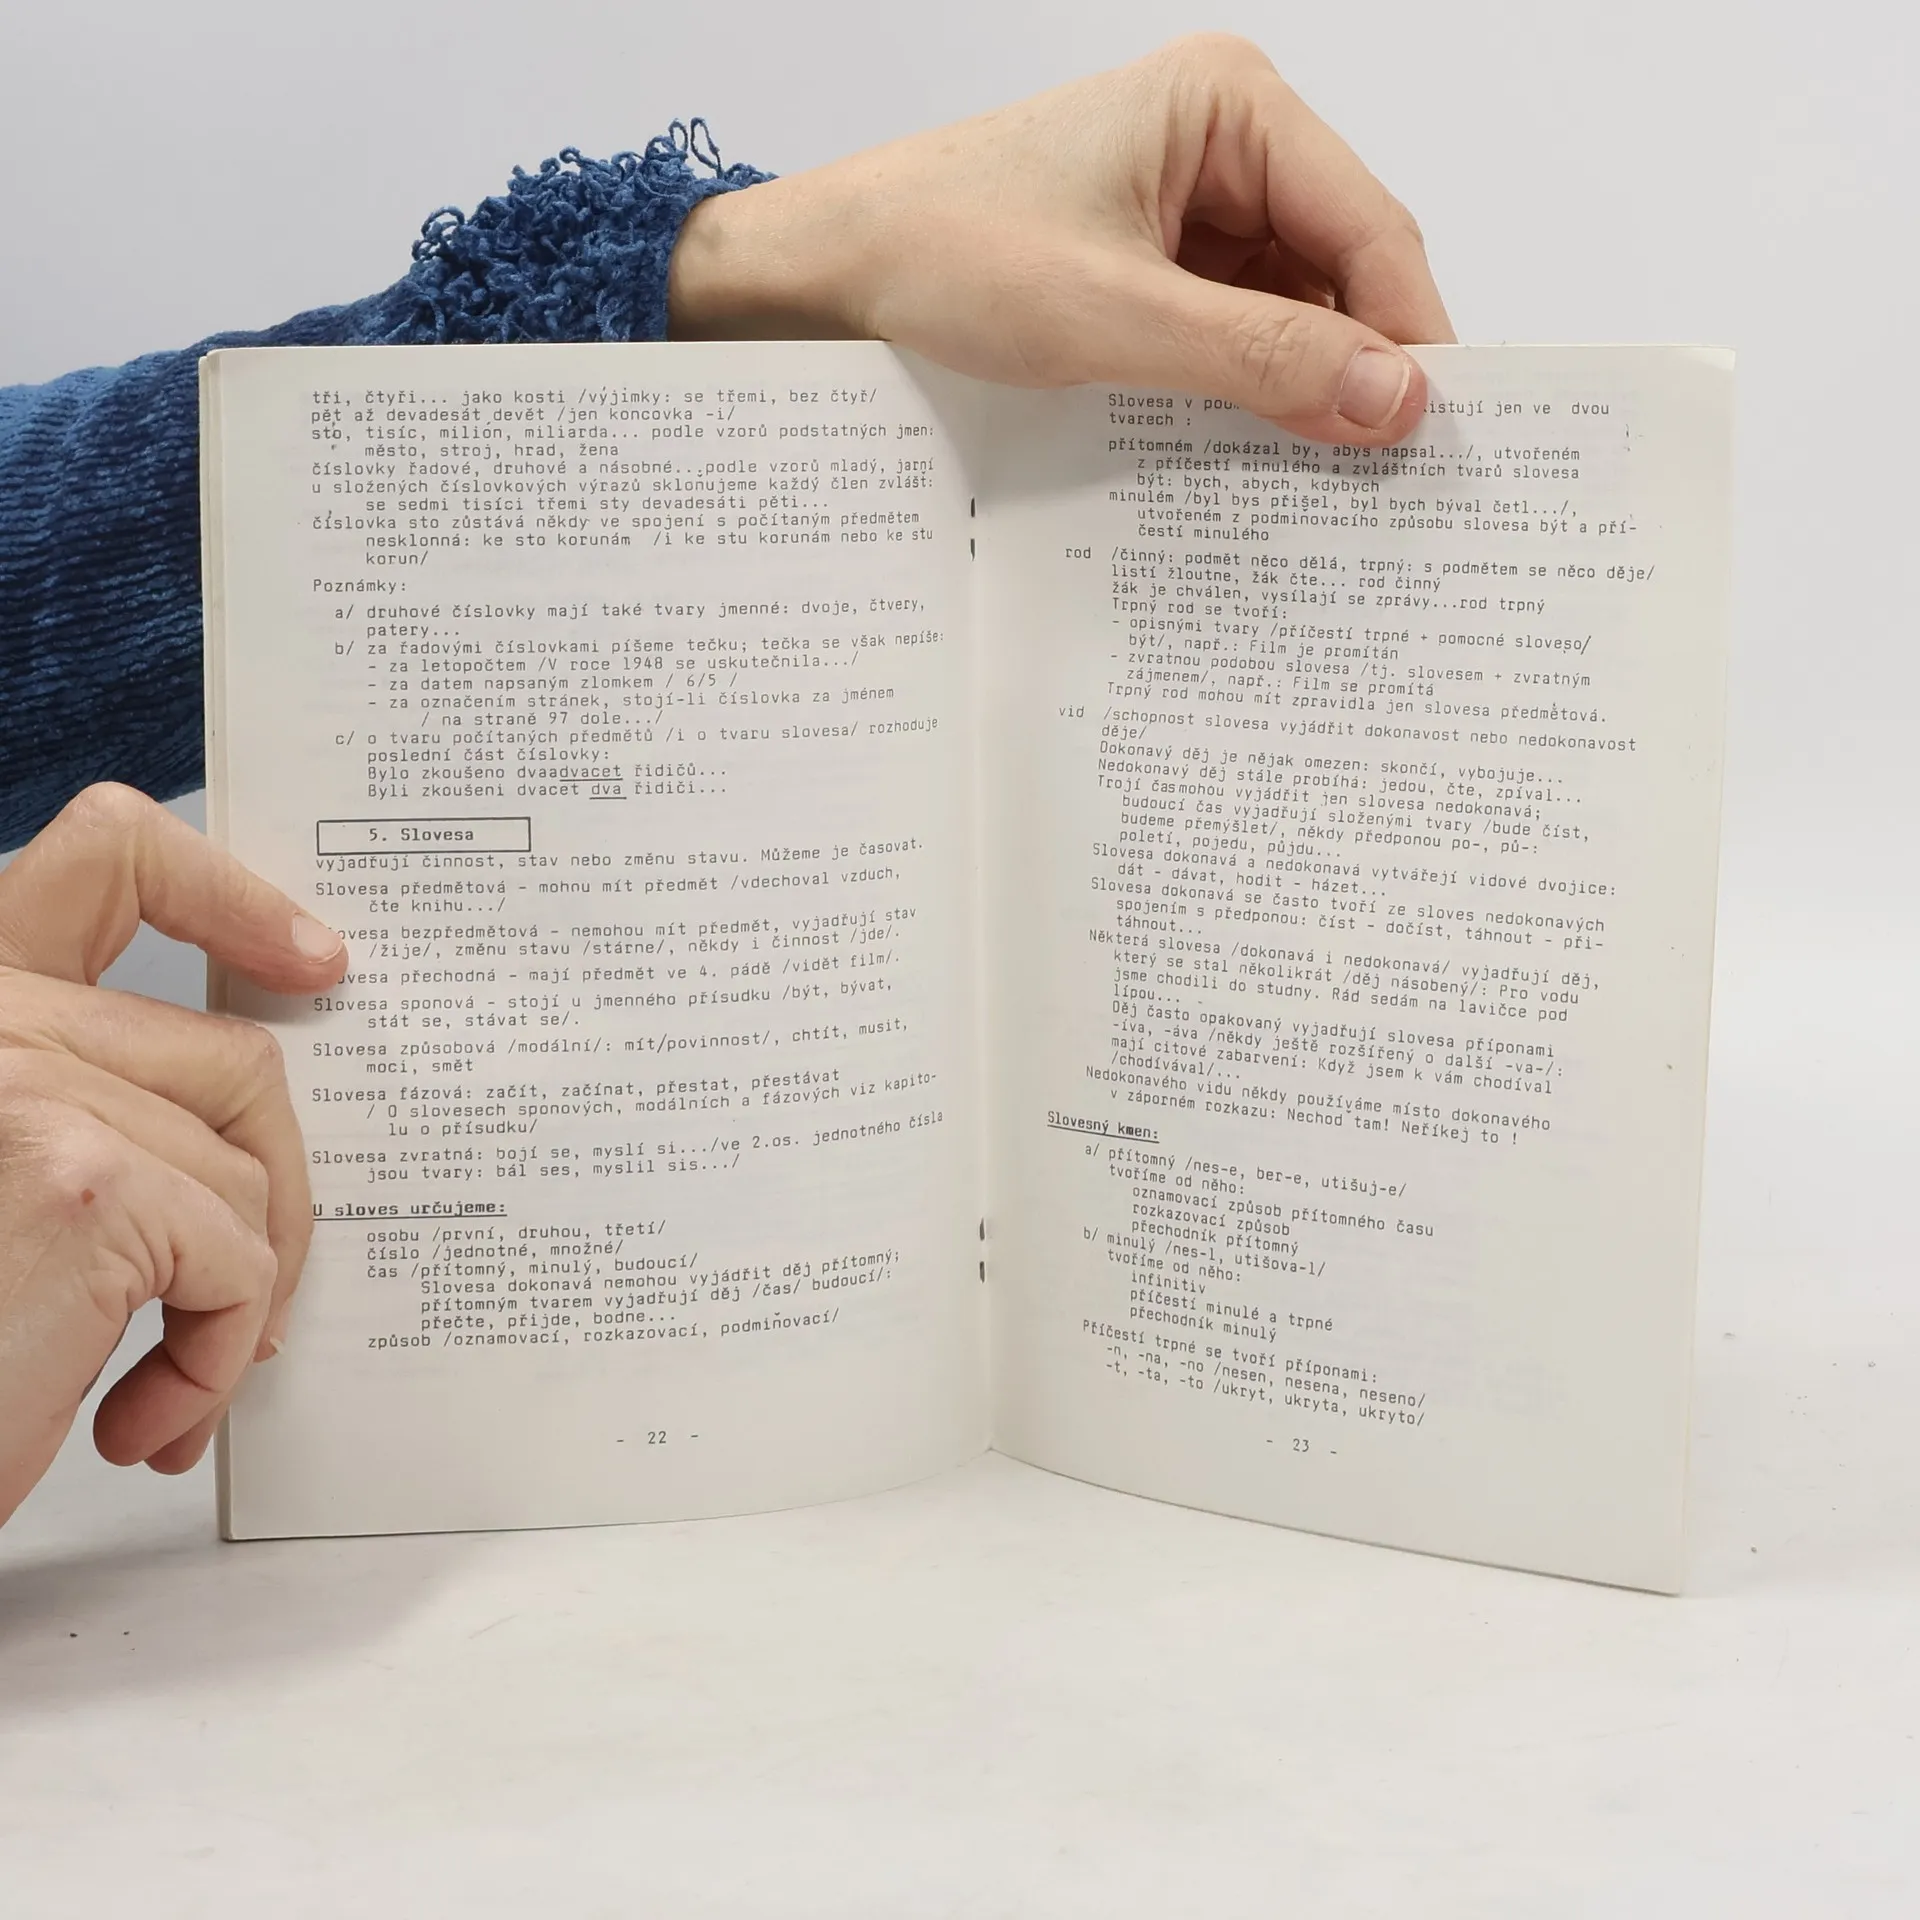 tři, čtyři... jako kosti /výjimky: se třemi, bez čtyř/
pět až devadesát devět /jen koncovka -i/
sto, tisíc, milión, miliarda... podle vzorů podstatných jmen:
město, stroj, hrad, žena
číslovky řadové, druhové a násobné...podle vzorů mladý, jarní
u složených číslovkových výrazů skloňujeme každý člen zvlášť:
se sedmi tisíci třemi sty devadesáti pěti...
číslovka sto zůstává někdy ve spojení s počítaným předmětem
nesklonná: ke sto korunám /i ke stu korunám nebo ke stu
korun/
Poznámky:
a/ druhové číslovky mají také tvary jmenné: dvoje, čtvery,
patery...
b/ za řadovými číslovkami píšeme tečku; tečka se však nepíše:
- za letopočtem /V roce 1948 se uskutečnila.../
- za datem napsaným zlomkem / 6/5 /
- za označením stránek, stojí-li číslovka za jménem
/ na straně 97 dole.../
c/ o tvaru počítaných předmětů /i o tvaru slovesa/ rozhoduje
poslední část číslovky:
Bylo zkoušeno dvaadvacet řidičů...
Byli zkoušeni dvacet dva řidiči...
5. Slovesa
vyjadřují činnost, stav nebo změnu stavu. Můžeme je časovat.
Slovesa předmětová - mohnu mít předmět /vdechoval vzduch,
čte knihu.../
ovesa bezpředmětová - nemohou mít předmět, vyjadřují stav
/žije/, změnu stavu /stárne/, někdy i činnost /jde/.
vesa přechodná - mají předmět ve 4. pádě /vidět film/.
Slovesa sponová - stojí u jmenného přísudku /být, bývat,
stát se, stávat se/.
Slovesa způsobová /modální/: mít/povinnost/, chtít, musit,
moci, smět
Slovesa fázová: začít, začínat, přestat, přestávat
/ O slovesech sponových, modálních a fázových viz kapito-
lu o přísudku/
Slovesa zvratná: bojí se, myslí si.../ve 2.os. jednotného čísla
jsou tvary: bál ses, myslil sis.../
U sloves určujeme:
osobu /první, druhou, třetí/
číslo /jednotné, množné/
čas /přítomný, minulý, budoucí/
Slovesa dokonavá nemohou vyjádřit děj přítomný;
přítomným tvarem vyjadřují děj /čas/ budoucí/:
přečte, přijde, bodne...
způsob /oznamovací, rozkazovací, podmiňovací/
- 22 -
Slovesa v istují jen ve dvou
tvarech :
přítomném /dokázal by, abys napsal.../, utvořeném
z příčestí minulého a zvláštních tvarů slovesa
být: bych, abych, kdybych
minulém /byl bys přišel, byl bych býval četl.../,
utvořeném z podmiňovacího způsobu slovesa být a pří-
čestí minulého
rod /činný: podmět něco dělá, trpný: s podmětem se něco děje/
listí žloutne, žák čte... rod činný
žák je chválen, vysílají se zprávy...rod trpný
Trpný rod se tvoří:
- opisnými tvary /příčestí trpné + pomocné sloveso/
být/, např.: Film je promítán
- zvratnou podobou slovesa /tj. slovesem + zvratným
zájmenem/, např.: Film se promítá
Trpný rod mohou mít zpravidla jen slovesa předmětová.
vid /schopnost slovesa vyjádřit dokonavost nebo nedokonavost
děje/
Dokonavý děj je nějak omezen: skončí, vybojuje...
Nedokonavý děj stále probíhá: jedou, čte, zpíval...
Trojí časmohou vyjádřit jen slovesa nedokonavá;
budoucí čas vyjadřují složenými tvary /bude číst,
budeme přemýšlet/, někdy předponou po-, pů-:
poletí, pojedu, půjdu...
Slovesa dokonavá a nedokonavá vytvářejí vidové dvojice:
dát - dávat, hodit - házet...
Slovesa dokonavá se často tvoří ze sloves nedokonavých
spojením s předponou: číst - dočíst, táhnout - při-
táhnout...
Některá slovesa /dokonavá i nedokonavá/ vyjadřují děj,
který se stal několikrát /děj násobený/: Pro vodu
jsme chodili do studny. Rád sedám na lavičce pod
lípou...
Děj často opakovaný vyjadřují slovesa příponami
-íva, -áva /někdy ještě rozšířený o další -va-/:
mají citové zabarvení: Když jsem k vám chodíval
/chodívával/...
Nedokonavého vidu někdy používáme místo dokonavého
v záporném rozkazu: Nechoď tam! Neříkej to !
Slovesný kmen:
a/ přítomný /nes-e, ber-e, utišuj-e/
tvoříme od něho:
oznamovací způsob přítomného času
rozkazovací způsob
přechodník přítomný
b/ minulý /nes-l, utišova-l/
tvoříme od něho:
infinitiv
příčestí minulé a trpné
přechodník minulý
Příčestí trpné se tvoří příponami:
-n, -na, -no /nesen, nesena, neseno/
-t, -ta, -to /ukryt, ukryta, ukryto/
- 23 -